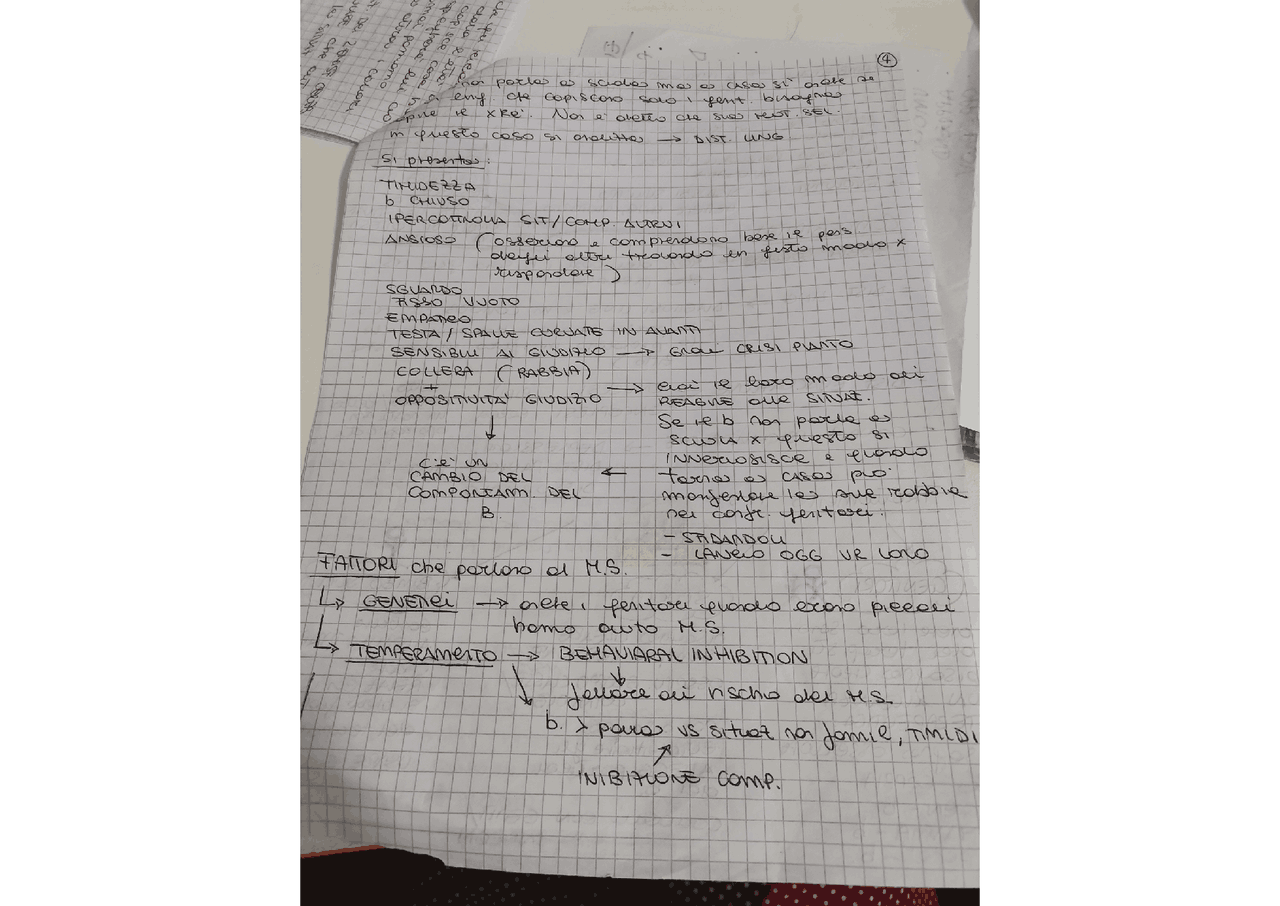 4
non parla a scuola ma a casa sì anche se
ling. che capiscono solo i genit. bisogna
capire il xkè. Non è detto che sia mut. sel.
in questo caso si
→ DIST. LING
Si presenta:
TIMIDEZZA
b CHIUSO
IPERCONTROLLA SIT/COMP. ALTRUI
ANSIOSO (osservano e comprendono bene il pens
degli altri trovando un gesto modo x
rispondere)
SGUARDO
FISSO VUOTO
EMPATICO
TESTA/SPALLE CURVATE IN AVANTI
SENSIBILI AL GIUDIZIO → CRISI PIANTO
COLLERA (RABBIA)
+
OPPOSITIVITA' GIUDIZIO
→ il loro modo di
REAGIRE alle SITUAZ.
Se il b non parla a
scuola x questo si
INNERVOSISCE e quando
torna a casa può
manifestare la sua rabbia
nei confr. genitori:
- SFIDANDOLI
- LANCIO OGG VR LORO
C'è UN
CAMBIO DEL
COMPORTAM. DEL
B.
FATTORI che parlano di M.S.
GENETICI → anche i genitori quando erano piccoli
hanno avuto M.S.
TEMPERAMENTO → BEHAVIARAL INHIBITION
fattore di rischio del M.S.
b. > paura vs situaz non famil, TIMIDI
INIBIZIONE COMP.